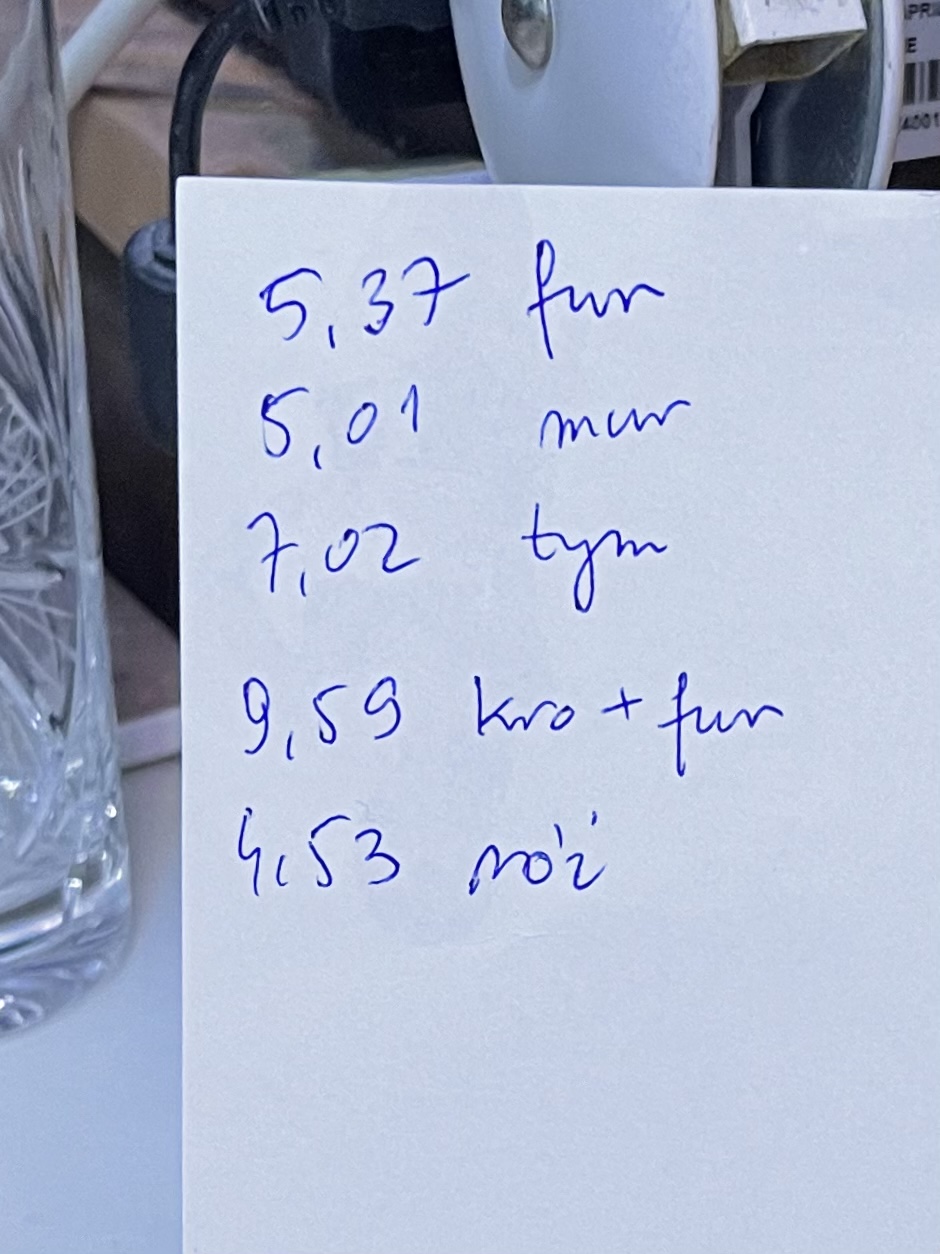 5,37 fur
5,01 mur
7,02 tym
9,59 kro + fur
4,53 róż